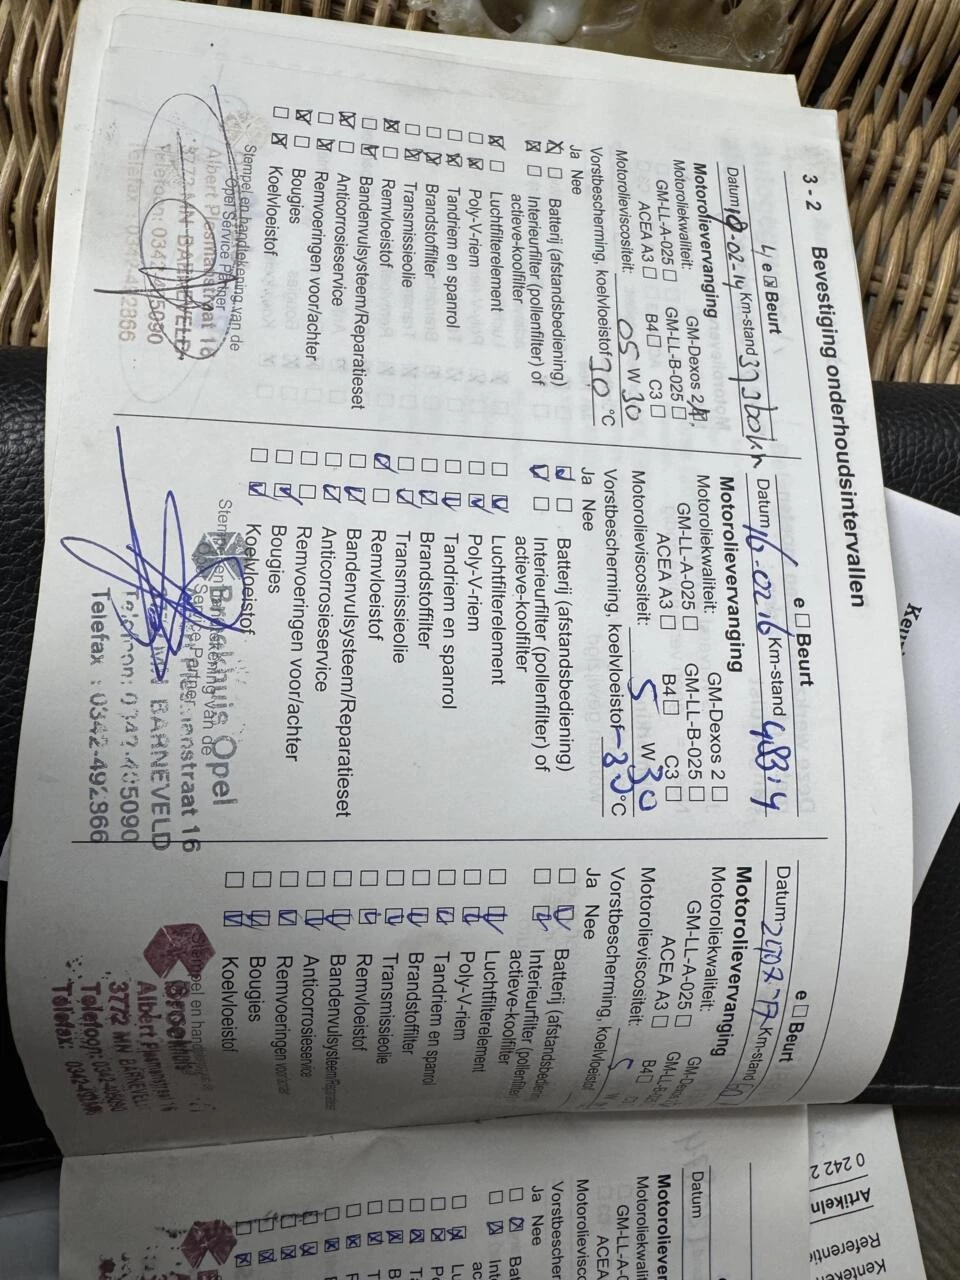 3 - 2 Bevestiging onderhoudsintervallen
4 e Beurt
Datum 18-02-14 Km-stand
Motorolievervanging
Motoroliekwaliteit: GM-Dexos 2
GM-LL-A-025 GM-LL-B-025
ACEA A3 B4 C3
Motorolieviscositeit: 05 W 30
Vorstbescherming, koelvloeistof 30 °C
Ja Nee
Batterij (afstandsbediening)
Interieurfilter (pollenfilter) of
actieve-koolfilter
Luchtfilterelement
Poly-V-riem
Tandriem en spanrol
Brandstoffilter
Transmissieolie
Remvloeistof
Bandenvulsysteem/Reparatieset
Anticorrosieservice
Remvoeringen voor/achter
Bougies
Koelvloeistof
Stempel en handtekening van de
Opel Service Partner
Albert Plesmanstraat 16
3772 MN BARNEVELD
Telefoon: 0342-405090
Telefax : 0342-492366
e Beurt
Datum 16-02-16 Km-stand 48314
Motorolievervanging
Motoroliekwaliteit: GM-Dexos 2
GM-LL-A-025 GM-LL-B-025
ACEA A3 B4 C3
Motorolieviscositeit: 5 W 30
Vorstbescherming, koelvloeistof °C
Ja Nee
Batterij (afstandsbediening)
Interieurfilter (pollenfilter) of
actieve-koolfilter
Luchtfilterelement
Poly-V-riem
Tandriem en spanrol
Brandstoffilter
Transmissieolie
Remvloeistof
Bandenvulsysteem/Reparatieset
Anticorrosieservice
Remvoeringen voor/achter
Bougies
Koelvloeistof
Stempel en handtekening van de
Service Partner
Opel
MN BARNEVELD
Telefax : 0342-492366
e Beurt
Datum Km-stand
Motorolievervanging
Motoroliekwaliteit:
GM-LL-A-025
ACEA A3 B4
Motorolieviscositeit: 5
Vorstbescherming, koelvloeistof
Ja Nee
Batterij (afstandsbedieni
Interieurfilter (pollenfilter
actieve-koolfilter
Luchtfilterelement
Poly-V-riem
Tandriem en spanrol
Brandstoffilter
Transmissieolie
Remvloeistof
Bandenvulsysteem/Reparatie
Anticorrosieservice
Remvoeringen voor/achter
Bougies
Koelvloeistof
Stempel en
3772 MN BARNEVEL
e
Datum
Motorolieve
Motoroliekwalite
GM-LL-A-0
ACEA
Motorolievisco
Vorstbescher
Ja Nee
0 242 2
Artikeln
Referentie
Kenteke